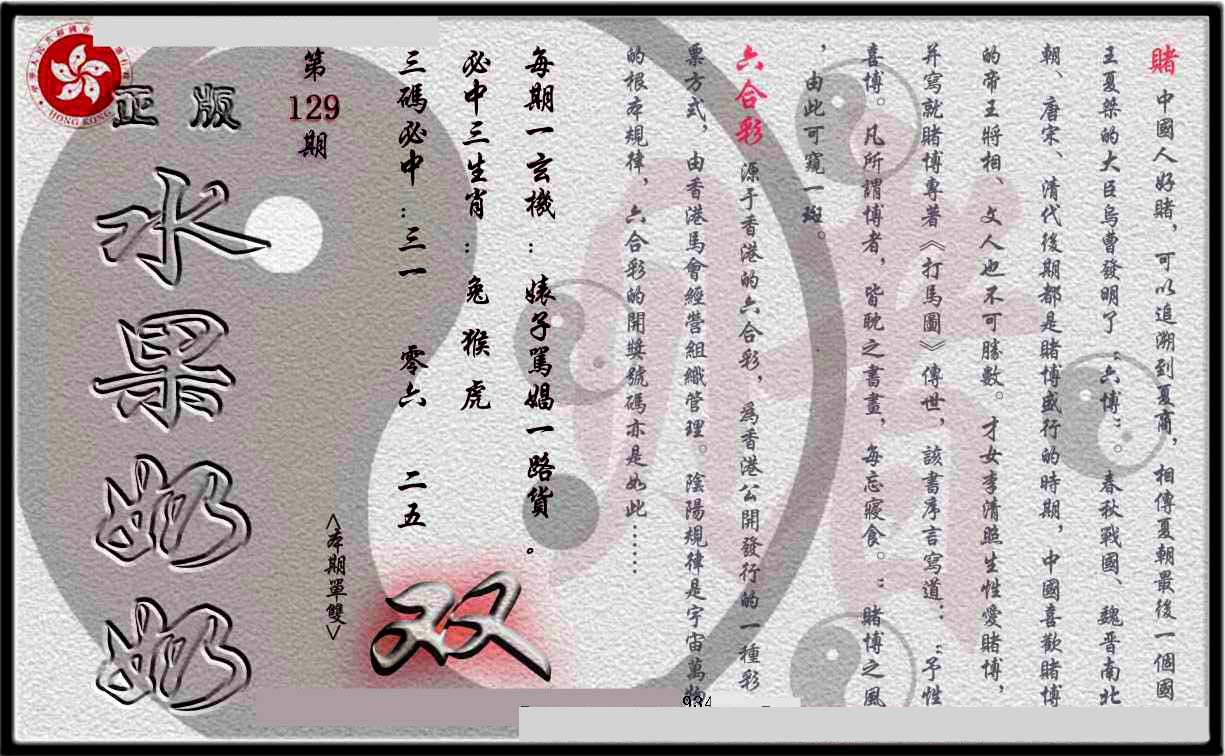 賭 中國人好賭，可以追溯到夏商，相傳夏朝最後一個國
王夏桀的大臣烏曹發明了“六博”。春秋戰國、魏晋南北
朝、唐宋、清代後期都是賭博盛行的時期，中國喜歡賭博
的帝王將相、文人也不可勝數。才女李清照生性愛賭博，
并寫就賭博專著《打馬圖》傳世，該書序言寫道：“予性
喜博。凡所謂博者，皆耽之書畫，每忘寢食。：賭博之風
，由此可窺一斑。
六合彩 源于香港的六合彩，為香港公開發行的一種彩
票方式，由香港馬會經營組織管理。陰陽規律是宇宙萬物
的根本規律，六合彩的開獎號碼亦是如此……
每期一玄機：婊子罵娼一路貨。
必中三生肖：兔 猴 虎
三碼必中：三一 零六 二五
<本期單雙>
双
第
129
期
正版
水果奶奶
HONG KONG
934